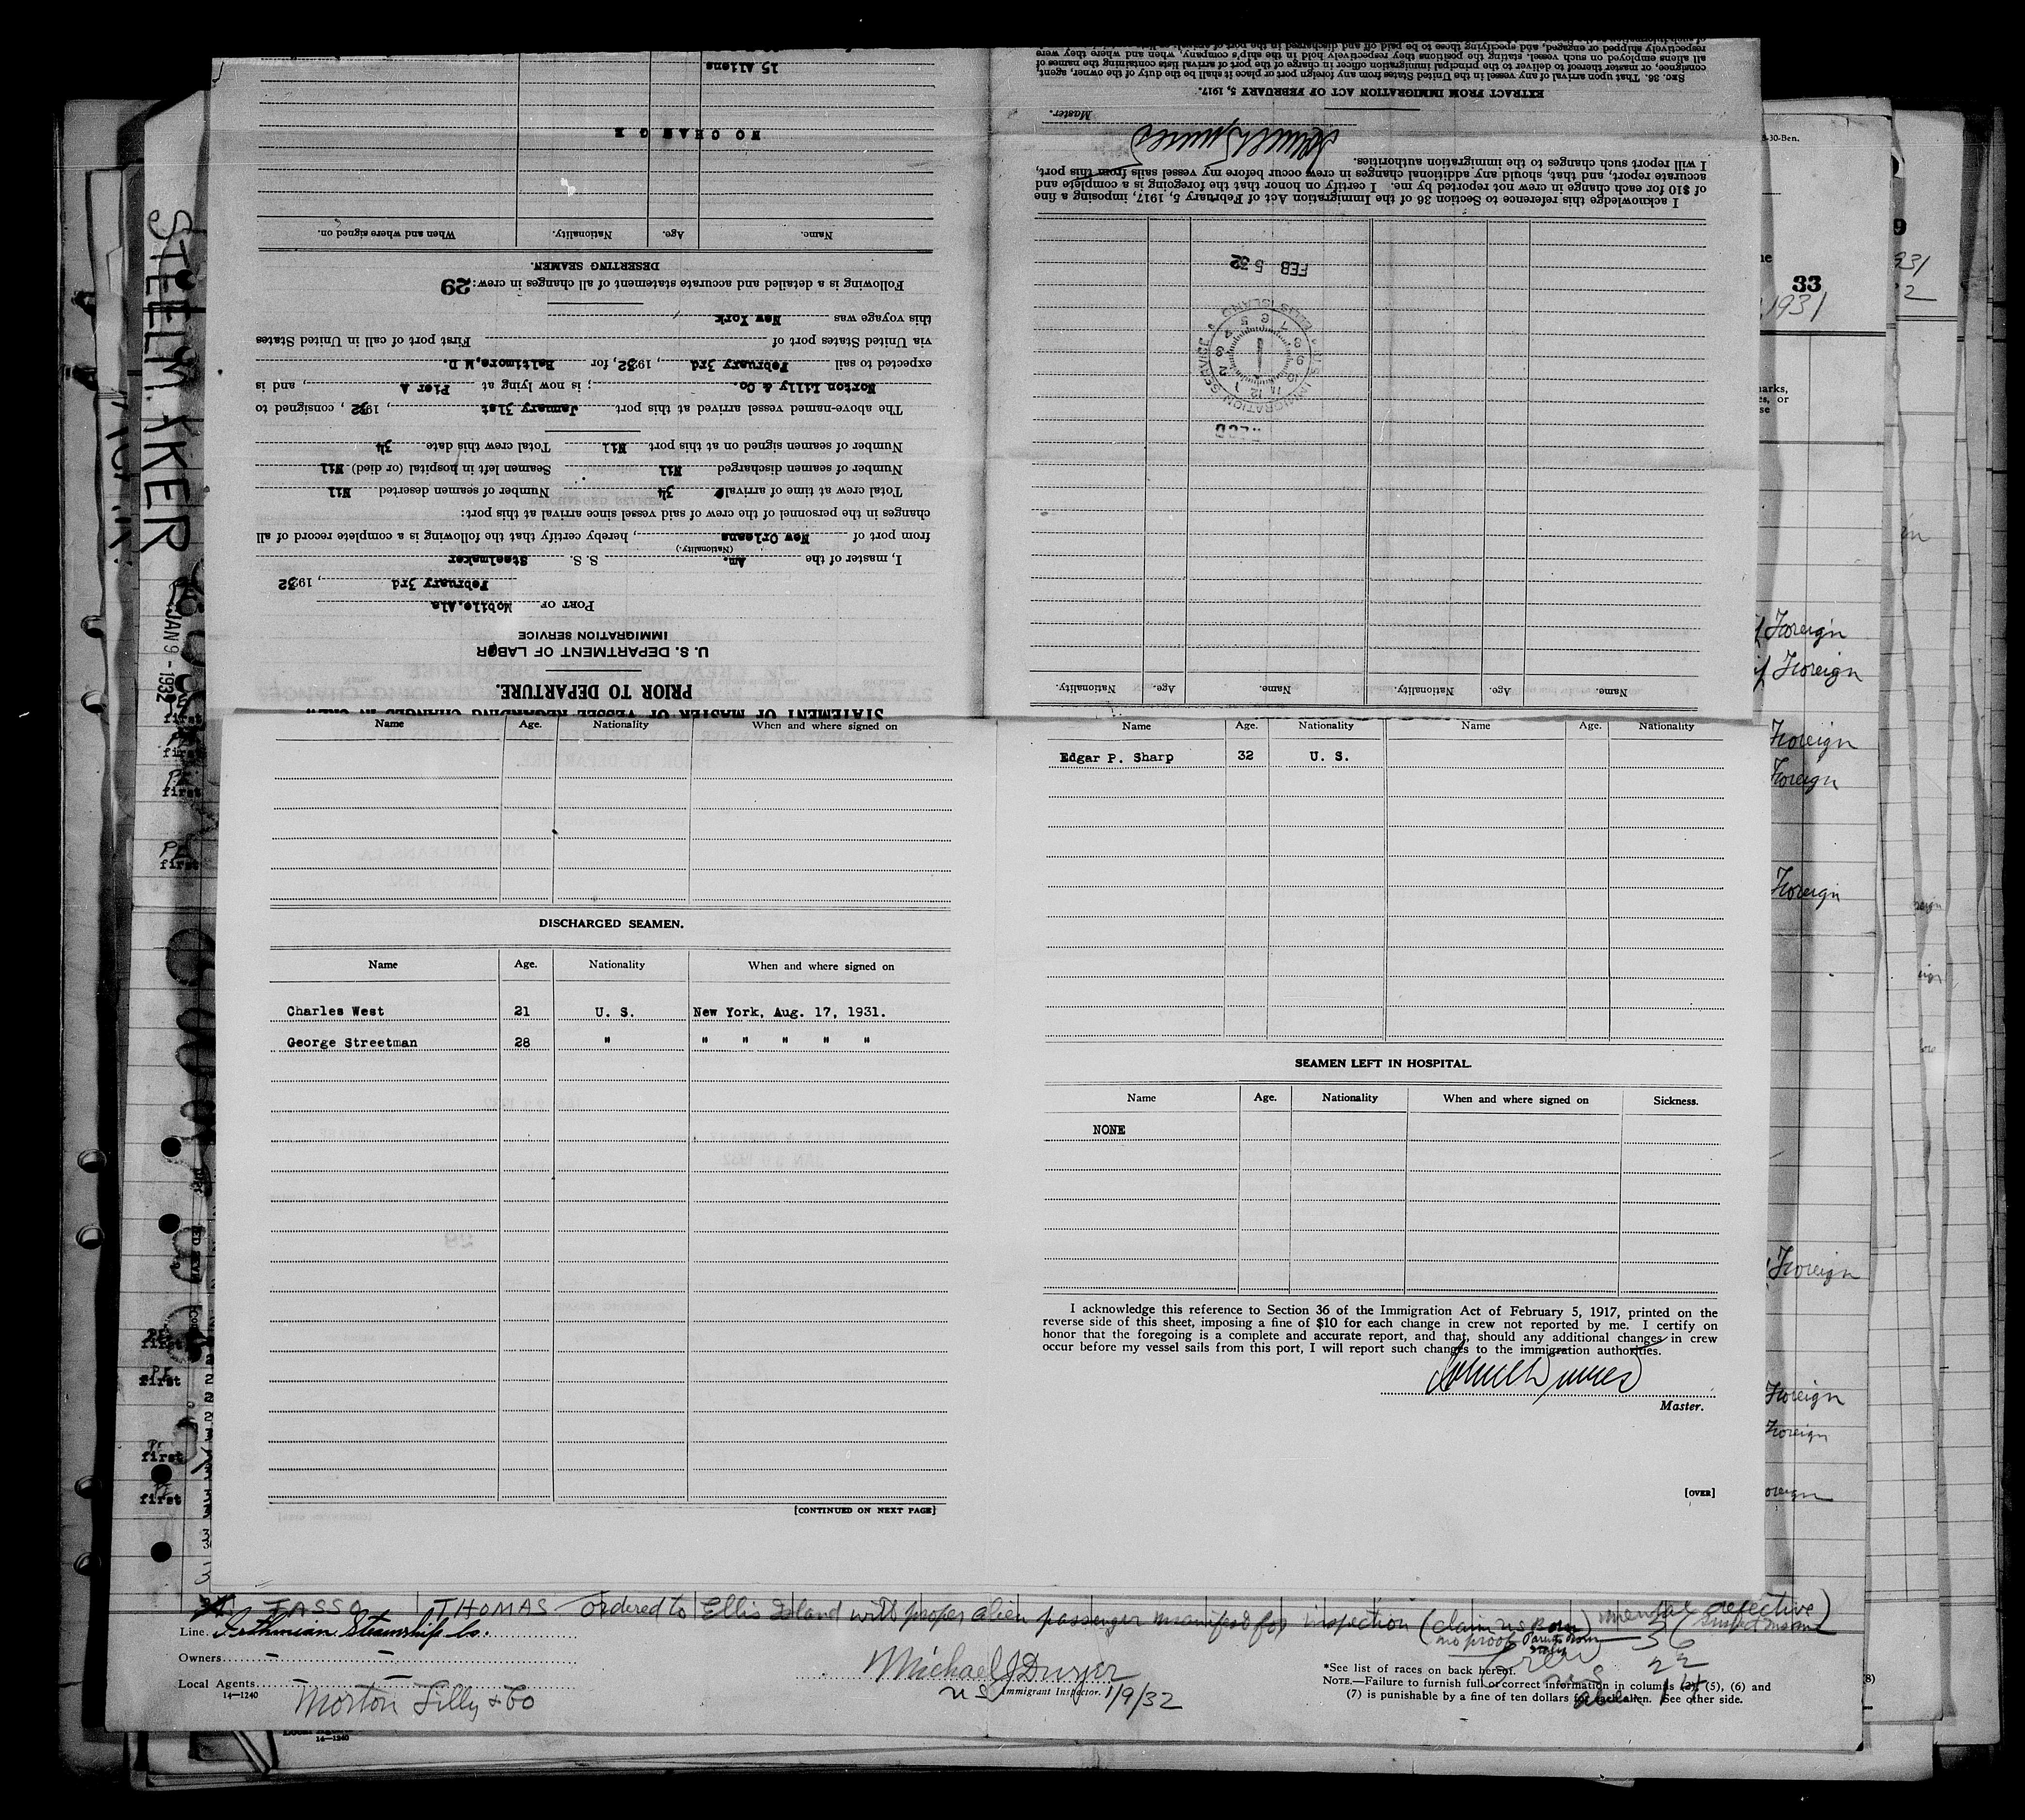 STEELMAKER
JAN 9 - 1932
STATEMENT OF MASTER OF VESSEL REGARDING CHANGES IN CREW
PRIOR TO DEPARTURE.
U. S. DEPARTMENT OF LABOR
IMMIGRATION SERVICE
PORT OF Mobile,Ala
February 3rd, 1932
I, master of the Am. S. S. Steelmaker
(Nationality.)
from port of New Orleans, hereby certify that the following is a complete record of all
changes in the personnel of the crew of said vessel since arrival at this port:
Total crew at time of arrival 34 Number of seamen deserted Nil
Number of seamen discharged Nil Seamen left in hospital (or died) Nil
Number of seamen signed on at this port Nil Total crew this date 34
The above-named vessel arrived at this port January 31st, 1932, consigned to
Norton Lilly & Co.; is now lying at Pier A, and is
expected to sail February 3rd, 1932, for Baltimore,M D.
via United States port of First port of call in United States
this voyage was New York
Following is a detailed and accurate statement of all changes in crew: 29
DESERTING SEAMEN.
Name. Age. Nationality. When and where signed on.
NO CHANGE
15 Aliens
Name. Age. Nationality. Name. Age. Nationality.
RECD
U.S. IMMIGRATION SERVICE
ELLIS ISLAND
FEB 5 32
I acknowledge this reference to Section 36 of the Immigration Act of February 5, 1917, imposing a fine
of $10 for each change in crew not reported by me. I certify on honor that the foregoing is a complete and
accurate report, and that, should any additional changes in crew occur before my vessel sails from this port,
I will report such changes to the immigration authorities.
Master.
EXTRACT FROM IMMIGRATION ACT OF FEBRUARY 5, 1917.
SEC. 36. That upon arrival of any vessel in the United States from any foreign port or place it shall be the duty of the owner, agent,
consignee, or master thereof to deliver to the principal immigration officer in charge of the port of arrival lists containing the names of
all aliens employed on such vessel, stating the positions they respectively hold in the ship's company, when and where they were
respectively shipped or engaged, and specifying those to be paid off and discharged in the port of arrival
Name Age. Nationality When and where signed on
DISCHARGED SEAMEN.
Name Age. Nationality When and where signed on
Charles West 21 U. S. New York, Aug. 17, 1931.
George Streetman 28 " " " " " "
[CONTINUED ON NEXT PAGE]
Name Age. Nationality Name Age. Nationality
Edgar P. Sharp 32 U. S.
SEAMEN LEFT IN HOSPITAL.
Name Age. Nationality When and where signed on Sickness.
NONE
I acknowledge this reference to Section 36 of the Immigration Act of February 5, 1917, printed on the
reverse side of this sheet, imposing a fine of $10 for each change in crew not reported by me. I certify on
honor that the foregoing is a complete and accurate report, and that, should any additional changes in crew
occur before my vessel sails from this port, I will report such changes to the immigration authorities.
Master.
[OVER]
33
1931
Foreign
Foreign
Foreign
Foreign
Foreign
Foreign
Foreign
Foreign
first
first
first
first
first
first
first
first
TASSO THOMAS ordered to Ellis Island with proper alien passenger manifest for inspection (claim US Born) mental defective)
no proof Parents from Italy
Line. Isthmian Steamship Co.
Owners
Local Agents Norton Lilly & Co
14—1240
Immigrant Inspector. 1/9/32
Crew 36
U.S. 22
alien 14
*See list of races on back hereof.
NOTE.—Failure to furnish full or correct information in columns (2), (5), (6) and
(7) is punishable by a fine of ten dollars for each alien. See other side.
14—1240